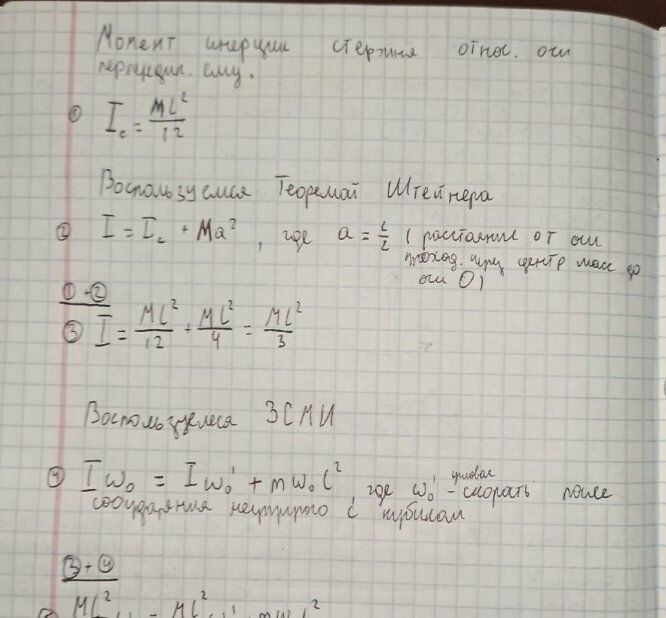 Момент инерции стержня относ. оси
перпендик. ему.
① I_c = Ml²/12
Воспользуемся Теоремой Штейнера
② I = I_c + Ma², где a = l/2 ( расстояние от оси
проход. через центр масс до
оси O)
①→②
③ I = Ml²/12 + Ml²/4 = Ml²/3
Воспользуемся ЗСМИ
④ Iω₀ = Iω₀' + mω₀l², где ω₀' - угловая скорость после
соударения неупругого с кубиком
③→④